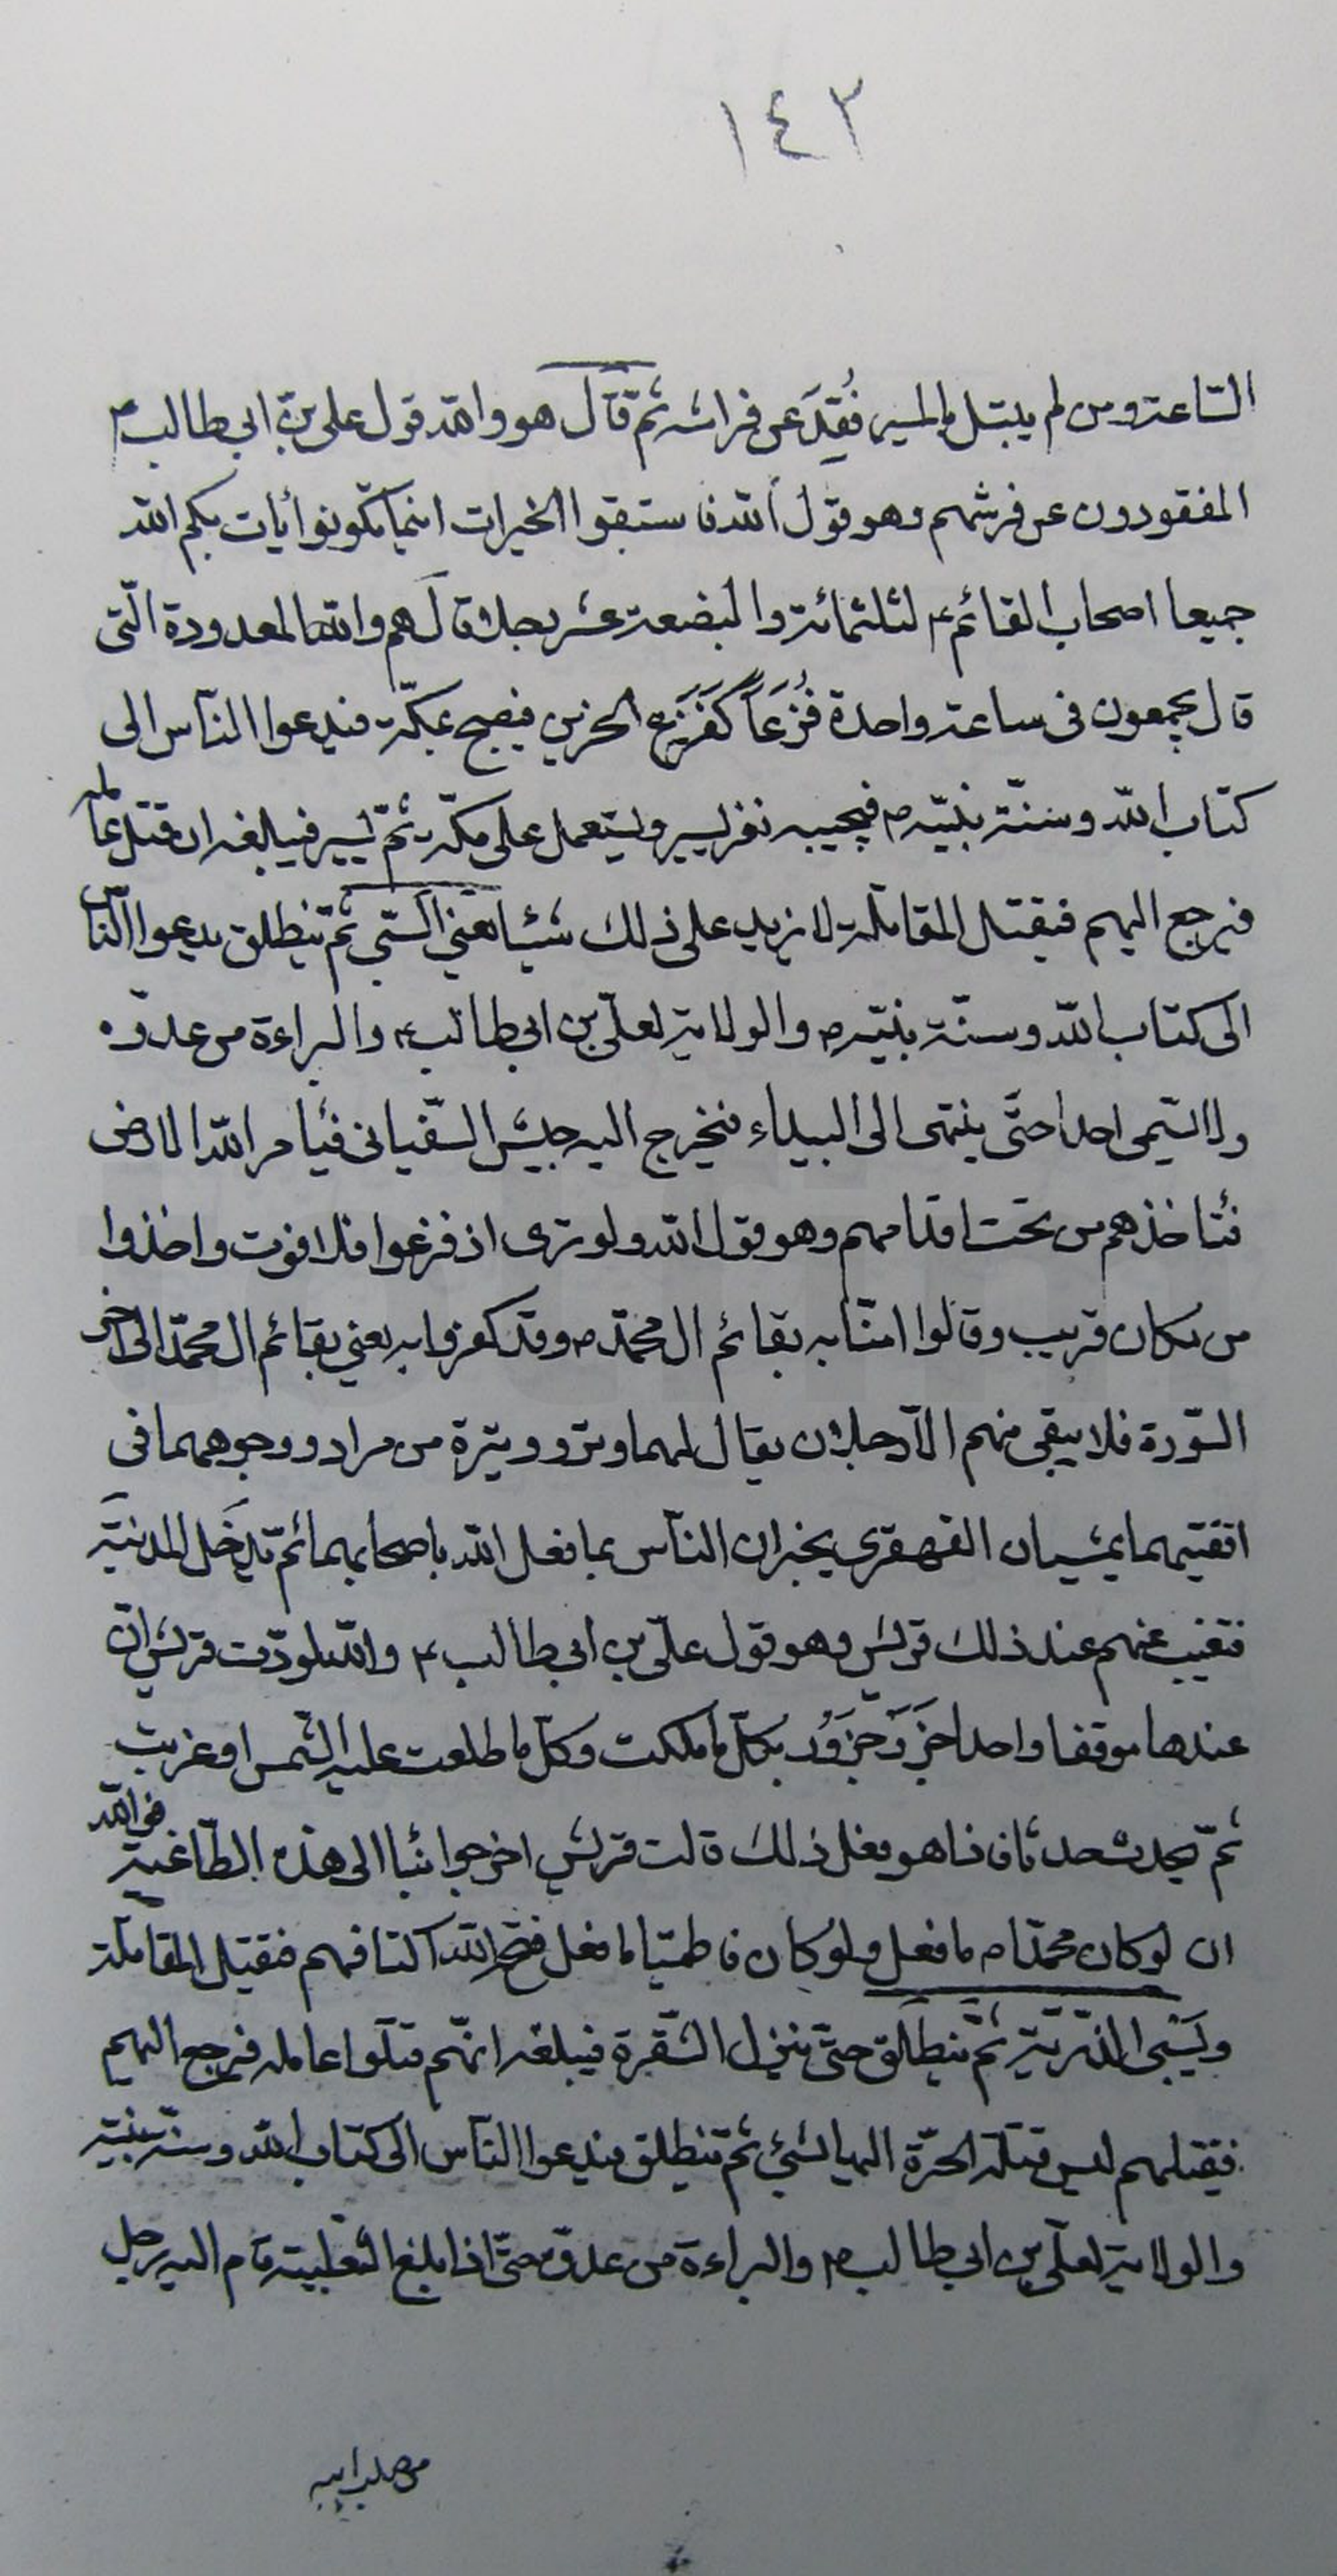 ١٤٣
الساعة ومن لم يبتل بالمسير فُقِدَ عن فراشه ثم قال هو والله قول علي بن ابي طالب ع
المفقودون عن فرشهم وهو قول الله فاستبقوا الخيرات اينما تكونوا يأت بكم الله
جميعا اصحاب القائم ع لثلثمائة والبضعة عشر رجلا قال هم والله المعدودة التي
قال يجمعون في ساعة واحدة قُزَعاً كَقَزَعِ الخريف فيصبح بمكة فيدعوا الناس الى
كتاب الله وسنة نبيه ص فيجيبه نفر يسير ويستعمل على مكة ثم يسير فيبلغه ان قتل عامله
فيرجع اليهم فيقتل المقاتلة لا يزيد على ذلك شيئا يعني السبي ثم ينطلق يدعوا الناس
الى كتاب الله وسنة نبيه ص والولاية لعلي بن ابي طالب ع والبراءة من عدوه
ولا يسمى احدا حتى ينتهى الى البيداء فيخرج اليه جيش السفياني فيأمر الله الارض
فتأخذهم من تحت اقدامهم وهو قول الله ولو ترى اذ فزعوا فلا فوت واخذوا
من مكان قريب وقالوا امنا به بقائم ال محمد ص وقد كفروا به يعني بقائم ال محمد الى اخر
السورة فلا يبقى منهم الا رجلان يقال لهما وتر ووتيرة من مراد ووجوههما في
اقفيتهما يمشيان القهقرى يخبران الناس بما فعل الله باصحابهما ثم يدخل المدينة
فتغيب عنهم عند ذلك قريش وهو قول علي بن ابي طالب ع والله لودت قريش ان
عندها موقفا واحدا جَزْرَ جَزُور بكل ما ملكت وكل ما طلعت عليه الشمس او غربت
ثم يحدث حدثا فاذا هو فعل ذلك قالت قريش اخرجوا بنا الى هذه الطاغية فوالله
ان لو كان محمديا ص ما فعل ولو كان فاطميا ما فعل فيمنح الله اكتافهم فيقتل المقاتلة
ويسبى الذرية ثم ينطلق حتى ينزل الشقرة فيبلغه انهم قتلوا عامله فيرجع اليهم
فيقتلهم ليس قتلة الحرة اليها بشئ ثم ينطلق فيدعوا الناس الى كتاب الله وسنة نبيه
والولاية لعلي بن ابي طالب ع والبراءة من عدوه حتى اذا بلغ الثعلبية قام اليه رجل
من صلب ابيه